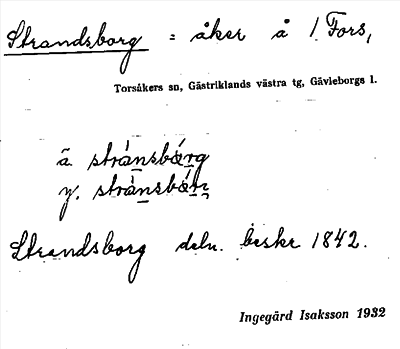 Strandsborg = åker å 1 Fors,
Torsåkers sn, Gästriklands västra tg, Gävleborgs l.
ä. stránsbárg
y. stránsbár̨
Strandsborg deln. beskr 1842.
Ingegärd Isaksson 1932